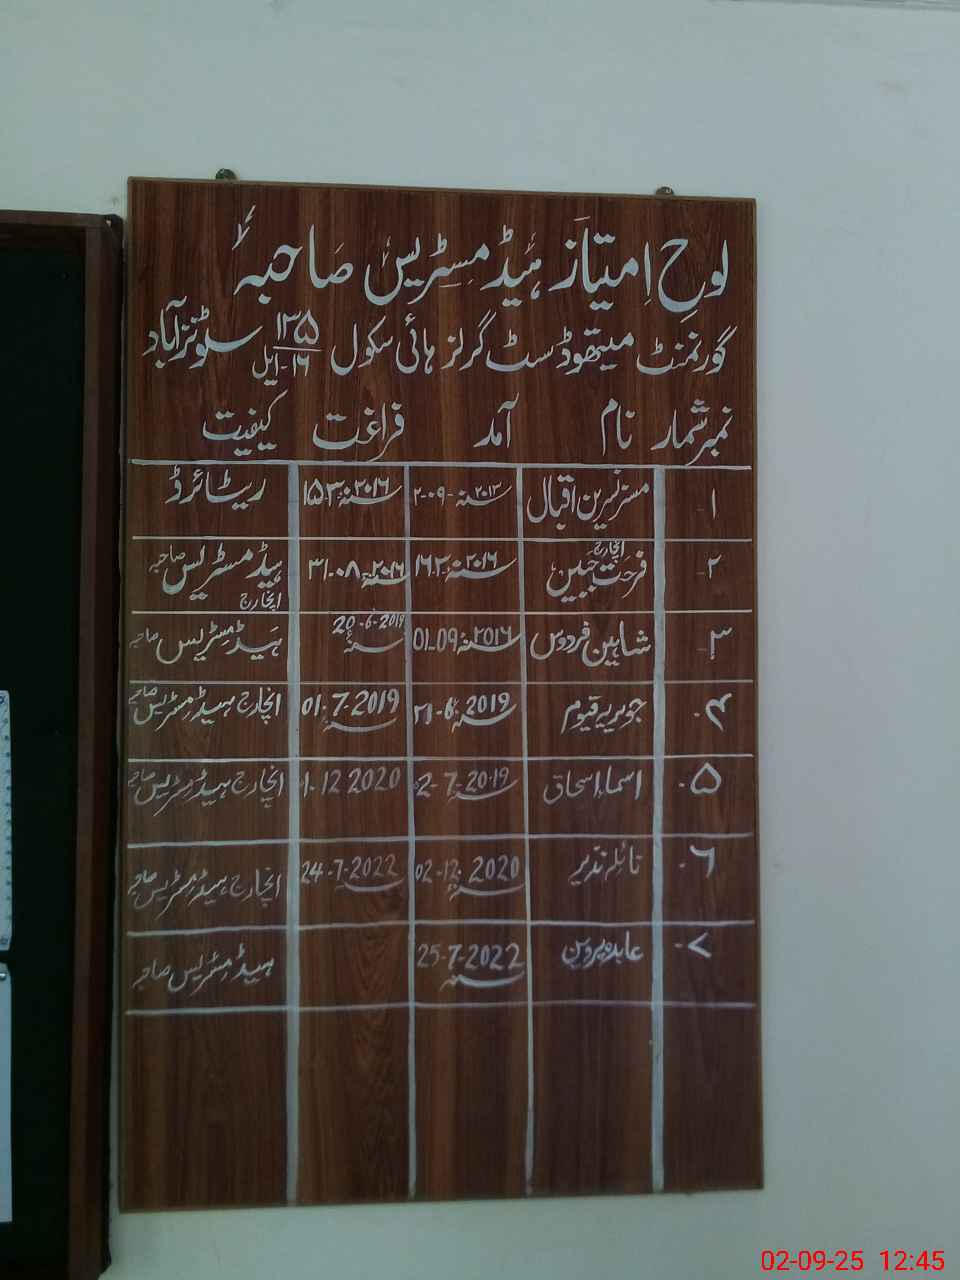 لوحِ امتیاز ہیڈ مسٹریس صاحبہ
گورنمنٹ میتھوڈسٹ گرلز ہائی سکول ۱۳۵/۱۶-ایل سلونزآباد
نمبر شمار نام آمد فراغت کیفیت
۱- مسز نسرین اقبال ۲۰۱۳؁-۰۹-۲ ۲۰۱۶؁-۳-۱۵ ریٹائرڈ
۲- فرحت جبین انچارج ۲۰۱۶؁-۳-۱۶ ۲۰۱۶؁-۰۸-۳۱ ہیڈ مسٹریس صاحبہ انچارج
۳- شاہین فردوس 01-09-۲۰۱۶؁ 20-6-2019؁ ہیڈ مسٹریس صاحبہ
۴- جویریہ قیوم 21-6-2019؁ 01-7-2019؁ انچارج ہیڈ مسٹریس صاحبہ
۵- اسماء اسحاق 02-7-2019؁ 1-12-2020 انچارج ہیڈ مسٹریس صاحبہ
۶- نائلہ نذیر 02-12-2020؁ 24-7-2022 انچارج ہیڈ مسٹریس صاحبہ
۷- عابدہ پروین 25-7-2022؁ ہیڈ مسٹریس صاحبہ
02-09-25 12:45